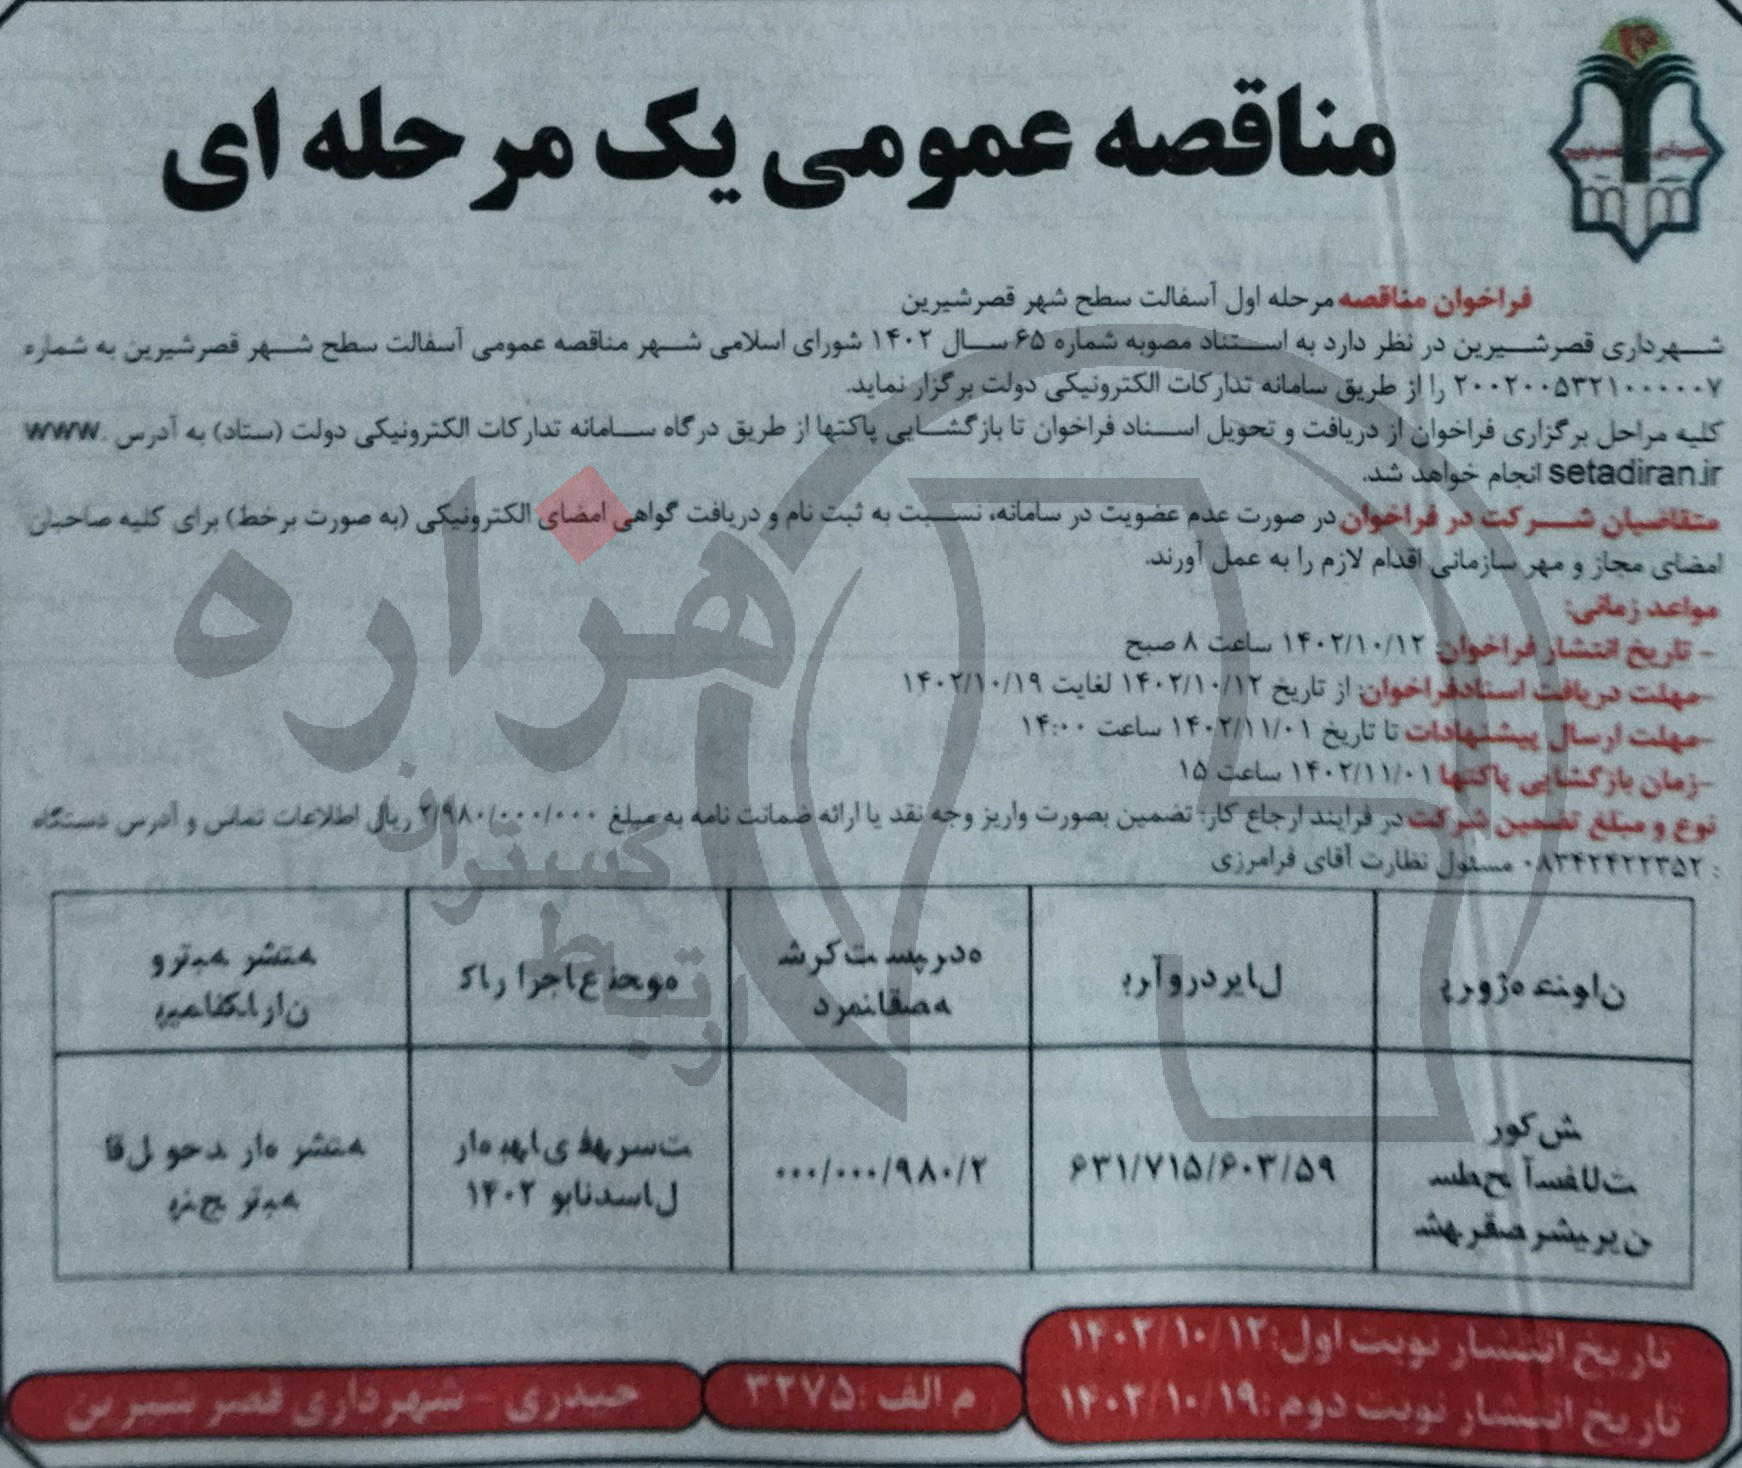 مناقصه عمومی یک مرحله ای
فراخوان مناقصه مرحله اول آسفالت سطح شهر قصرشیرین
شهرداری قصرشیرین در نظر دارد به استناد مصوبه شماره ۶۵ سال ۱۴۰۲ شورای اسلامی شهر مناقصه عمومی آسفالت سطح شهر قصرشیرین به شماره
۲۰۰۲۰۰۵۳۲۱۰۰۰۰۰۷ را از طریق سامانه تدارکات الکترونیکی دولت برگزار نماید.
کلیه مراحل برگزاری فراخوان از دریافت و تحویل اسناد فراخوان تا بازگشایی پاکتها از طریق درگاه سامانه تدارکات الکترونیکی دولت (ستاد) به آدرس www.
setadiran.ir انجام خواهد شد.
متقاضیان شرکت در فراخوان در صورت عدم عضویت در سامانه، نسبت به ثبت نام و دریافت گواهی امضای الکترونیکی (به صورت برخط) برای کلیه صاحبان
امضای مجاز و مهر سازمانی اقدام لازم را به عمل آورند.
مواعد زمانی:
- تاریخ انتشار فراخوان: ۱۴۰۲/۱۰/۱۲ ساعت ۸ صبح
-مهلت دریافت اسنادفراخوان: از تاریخ ۱۴۰۲/۱۰/۱۲ لغایت ۱۴۰۲/۱۰/۱۹
-مهلت ارسال پیشنهادات تا تاریخ ۱۴۰۲/۱۱/۰۱ ساعت ۱۴:۰۰
-زمان بازگشایی پاکتها ۱۴۰۲/۱۱/۰۱ ساعت ۱۵
نوع و مبلغ تضمین شرکت در فرایند ارجاع کار: تضمین بصورت واریز وجه نقد یا ارائه ضمانت نامه به مبلغ ۲/۹۸۰/۰۰۰/۰۰۰ ریال اطلاعات تماس و آدرس دستگاه
: ۰۸۳۴۲۴۲۲۳۵۲ مسئول نظارت آقای فرامرزی
ناونع هژورپ
لایر دروآرب
هدرپس تکرش
هصقانم رد
راک ارجا
ناراکنامیپ
شکور
تلافسآ حطس
نیریشرصق رهش
۶۳۱/۷۱۵/۶۰۳/۵۹
۰۰۰/۰۰۰/۹۸۰/۲
لاس ۱۴۰۲
تاریخ انتشار نوبت اول: ۱۴۰۲/۱۰/۱۲
تاریخ انتشار نوبت دوم: ۱۴۰۲/۱۰/۱۹
م الف: ۳۲۷۵
حیدری - شهرداری قصر شیرین
هزاره
ارتباط
گستران